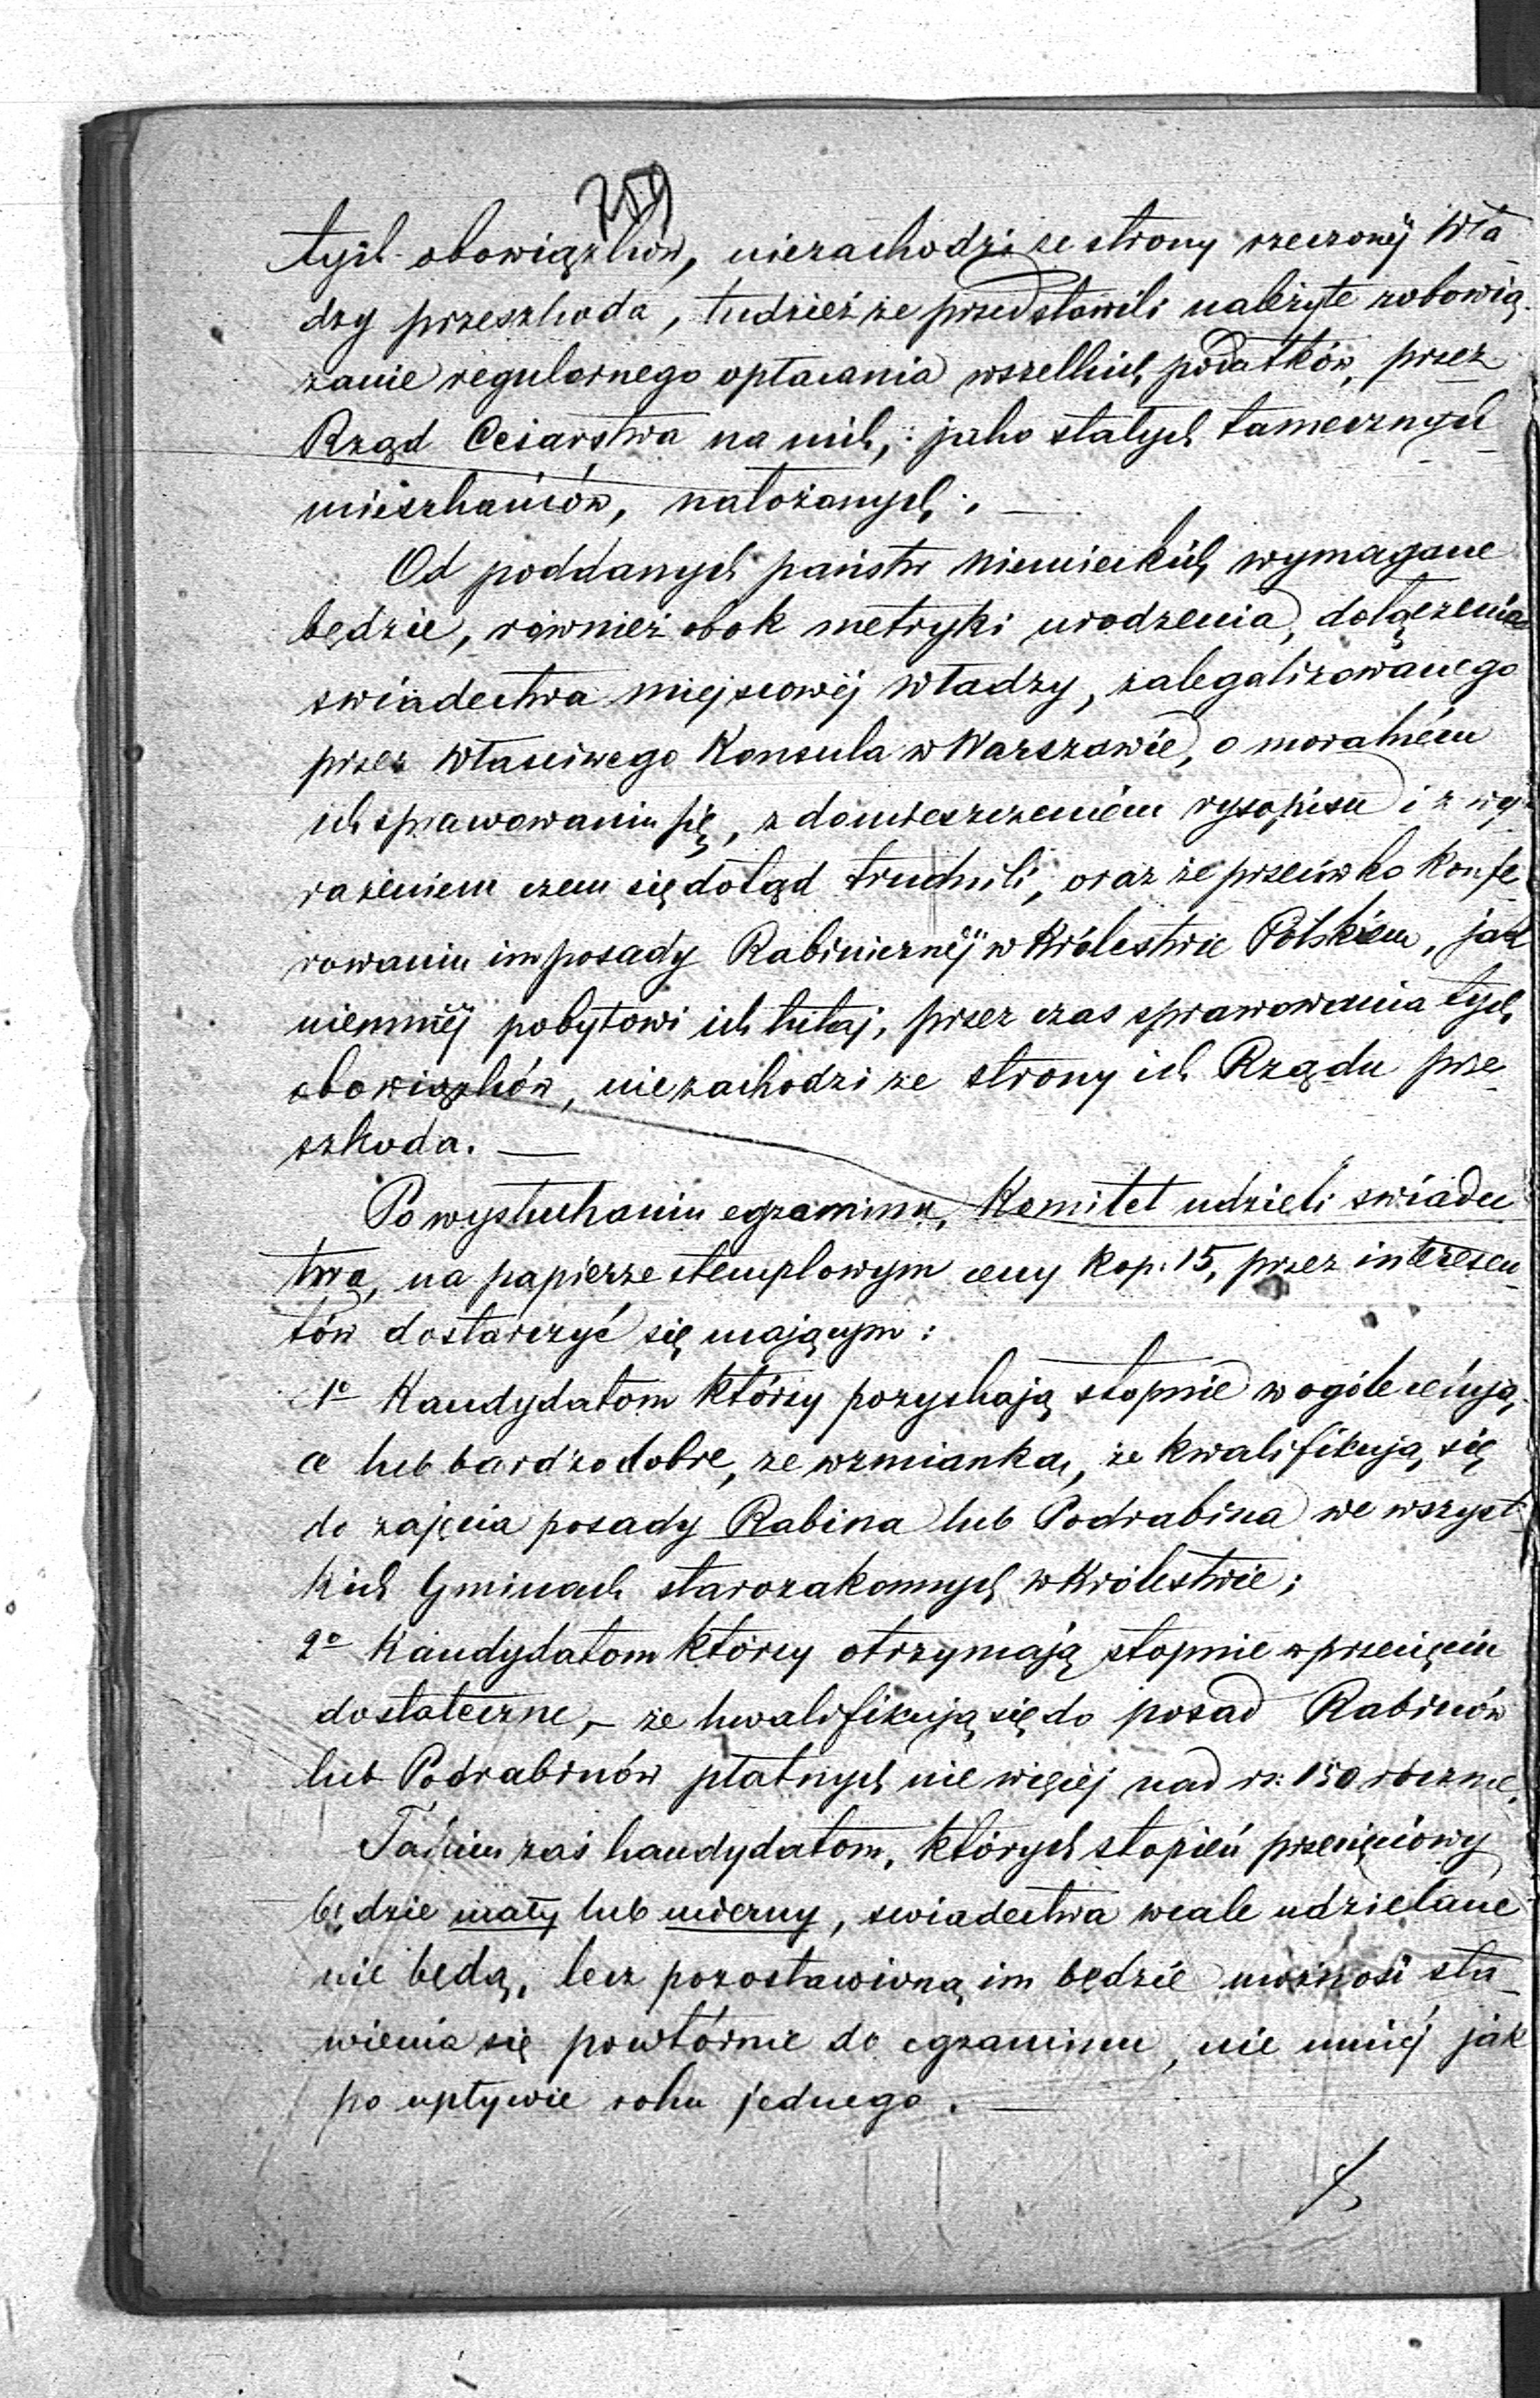 759
tych obowiązków, niezachodzi ze strony rzeczonéj Wła
dzy przeszkoda, tudzież że przedstawili należyte zobowią
zanie regularnego opłacania wszelkich podatków, przez
Rząd Cesarstwa na nich, : jako stałych tamecznych
mieszkańców, nałożonych : . —
Od poddanych państw niemieckich wymagane
będzie, również obok metryki urodzenia, dołączenia
swiadectwa miejscowéj władzy, zalegalizowanego
przez właściwego Konsula w Warszawie, o moralném
ich sprawowaniu się, z domieszczeniém rysopisu i z wy
rażeniem czem się dotąd trudnili, oraz że przeciwko konfe
rowaniu im posady Rabinicznéj w Królestwie Polskiem, jak
niemniéj pobytowi ich tutaj, przez czas sprawowania tych
obowiązków, niezachodzi ze strony ich Rządu prze
szkoda. —
Po wysłuchaniu egzaminu, Komitet udzieli swiadec
twa, na papierze stemplowym ceny kop. 15, przez interesen
tów dostarczyć się mającym :
1o Kandydatom którzy pozyskają stopnie w ogóle celują
ce lub bardzo dobre, ze wzmianką, że kwalifikują się
do zajęcia posady Rabina lub Podrabina we wszyst
kich Gminach starozakonnych w Królestwie ;
2o Kandydatom którzy otrzymają stopnie w przecięciu
dostateczne, – że kwalifikują się do posad Rabinów
lub Podrabinów płatnych nie więcéj nad rs: 150 rocznie.
Takim zaś kandydatom, których stopień przecięciowy
będzie mały lub mierny, swiadectwa wcale udzielane
nie będą, lecz pozostawioną im będzie możność sta
wienia się powtórnie do egzaminu, nie mniéj jak
po upływie roku jednego. —